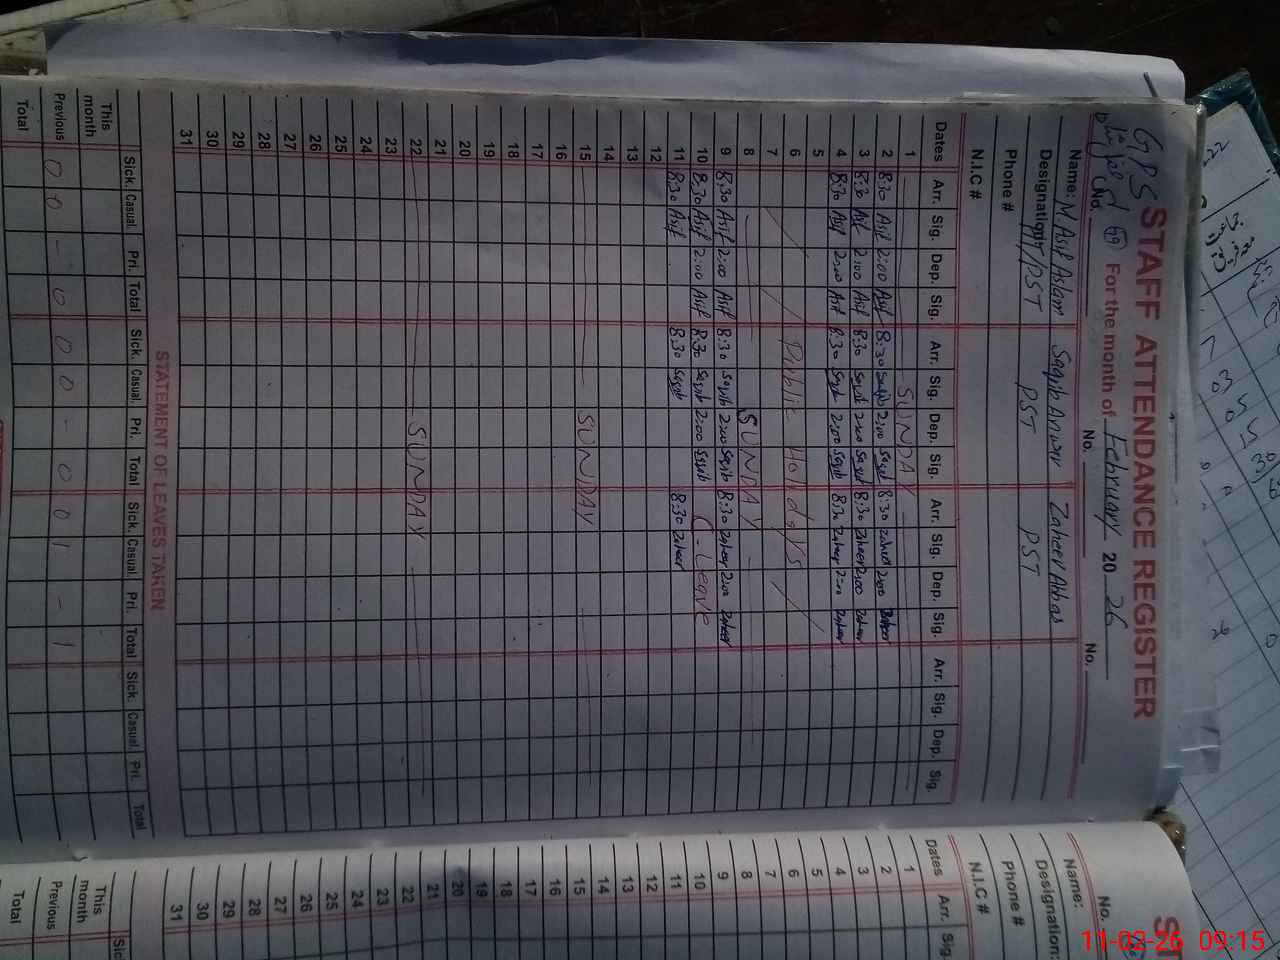 STAFF ATTENDANCE REGISTER
GPS
For the month of February 20 26
No. No. No.
Name: M. Asif Aslam Saqib Anwar Zaheer Abbas
Designation: PST PST PST
Phone #
N.I.C #
Dates Arr. Sig. Dep. Sig. Arr. Sig. Dep. Sig. Arr. Sig. Dep. Sig. Arr. Sig. Dep. Sig.
1 SUNDAY
2 8:30 Asif 2:00 Asif 8:30 Saqib 2:00 Saqib 8:30 Zaheer 2:00 Zaheer
3 8:30 Asif 2:00 Asif 8:30 Saqib 2:00 Saqib 8:30 Zaheer 2:00 Zaheer
4 8:30 Asif 2:00 Asif 8:30 Saqib 2:00 Saqib 8:30 Zaheer 2:00 Zaheer
5
6 Public Holidays
7
8 SUNDAY
9 8:30 Asif 2:00 Asif 8:30 Saqib 2:00 Saqib 8:30 Zaheer 2:00 Zaheer
10 8:30 Asif 2:00 Asif 8:30 Saqib 2:00 Saqib C-Leave
11 8:30 Asif 8:30 Saqib 8:30 Zaheer
12
13
14
15 SUNDAY
16
17
18
19
20
21
22 SUNDAY
23
24
25
26
27
28
29
30
31
STATEMENT OF LEAVES TAKEN
Sick. Casual. Pri. Total Sick. Casual. Pri. Total Sick. Casual. Pri. Total Sick. Casual. Pri. Total
This month
Previous 0 0 - 0 0 0 - 0 0 1 - 1
Total
ST
No.
Name:
Designation:
Phone #
N.I.C #
Dates Arr. Sig.
1
2
3
4
5
6
7
8
9
10
11
12
13
14
15
16
17
18
19
20
21
22
23
24
25
26
27
28
29
30
31
Sic
This month
Previous
Total
11-02-26 09:15